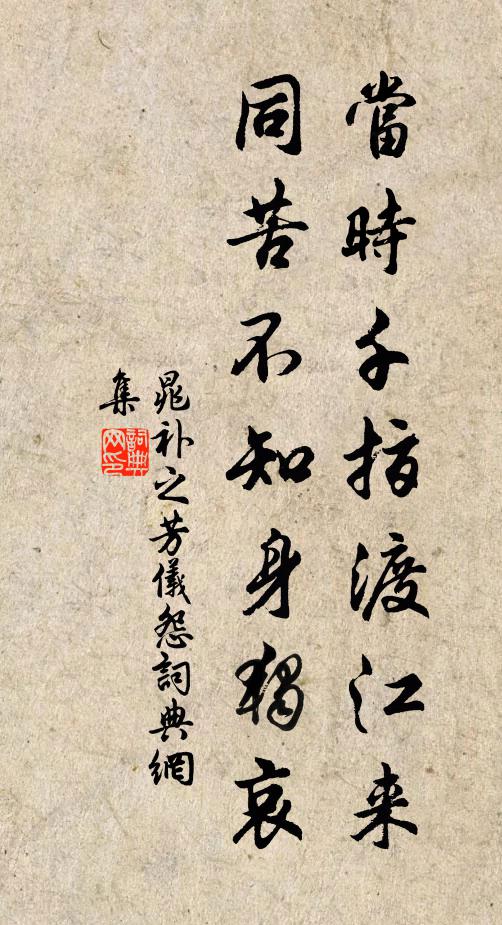 當時千指渡江来
同苦不知身獨哀
晁补之芳儀怨詞典網
集
詞典网印